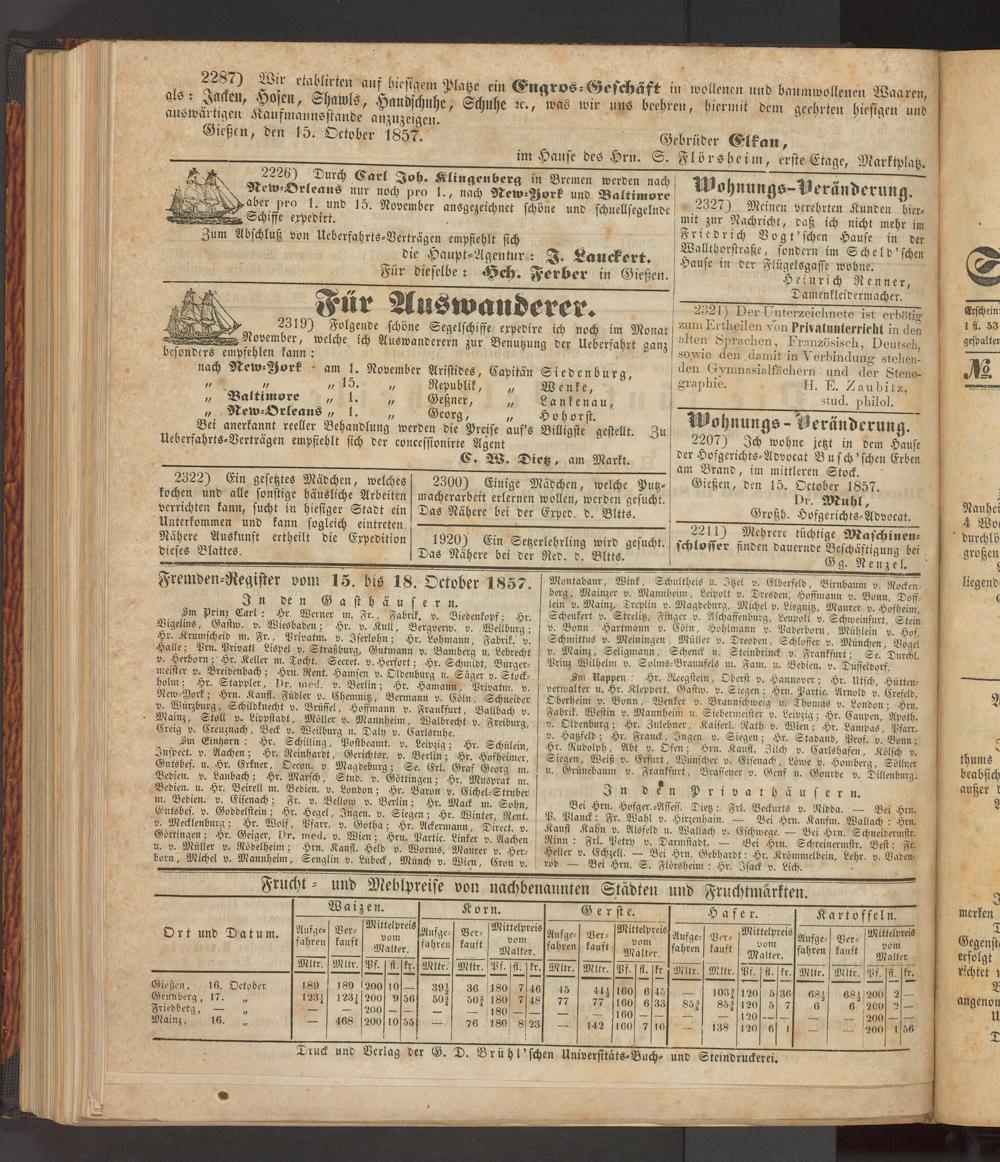 2287) Wir etablirten auf hiesigem Platze ein Engros-Geschäft in wollenen und baumwollenen Waaren,
als: Jacken, Hosen, Shawls, Handschuhe, Schuhe ꝛc., was wir uns beehren, hiermit dem geehrten hiesigen und
auswärtigen Kaufmannsstande anzuzeigen.
Gießen, den 15. October 1857.
Gebrüder Elkan,
im Hause des Hrn. S. Flörsheim, erste Etage, Marktplatz.
2226) Durch Carl Joh. Klingenberg in Bremen werden nach
New-Orleans nur noch pro 1., nach New-York und Baltimore
aber pro 1. und 15. November ausgezeichnet schöne und schnellsegelnde
Schiffe expedirt.
Zum Abschluß von Ueberfahrts-Verträgen empfiehlt sich
die Haupt-Agentur: J. Lauckert.
Für dieselbe: Hch. Ferber in Gießen.
Für Auswanderer.
2319) Folgende schöne Segelschiffe expedire ich noch im Monat
November, welche ich Auswanderern zur Benutzung der Ueberfahrt ganz
besonders empfehlen kann:
nach New-York am 1. November Aristides, Capitän Siedenburg,
„ „ „ 15. „ Republik, „ Wenke,
„ Baltimore „ 1. „ Geßner, „ Lankenau,
„ New-Orleans „ 1. „ Georg, „ Hohorst.
Bei anerkannt reeller Behandlung werden die Preise auf's Billigste gestellt. Zu
Ueberfahrts-Verträgen empfiehlt sich der concessionirte Agent
C. W. Dietz, am Markt.
2322) Ein gesetztes Mädchen, welches
kochen und alle sonstige häusliche Arbeiten
verrichten kann, sucht in hiesiger Stadt ein
Unterkommen und kann sogleich eintreten.
Nähere Auskunft ertheilt die Expedition
dieses Blattes.
2300) Einige Mädchen, welche Putz-
macherarbeit erlernen wollen, werden gesucht.
Das Nähere bei der Exped. d. Bltts.
1920) Ein Setzerlehrling wird gesucht.
Das Nähere bei der Red. d. Bltts.
Wohnungs-Veränderung.
2327) Meinen verehrten Kunden hier-
mit zur Nachricht, daß ich nicht mehr im
Friedrich Vogt'schen Hause in der
Wallthorstraße, sondern im Scheld'schen
Hause in der Flügelsgasse wohne.
Heinrich Renner,
Damenkleidermacher.
2321) Der Unterzeichnete ist erbötig
zum Ertheilen von Privatunterricht in den
alten Sprachen, Französisch, Deutsch,
sowie den damit in Verbindung stehen-
den Gymnasialfächern und der Steno-
graphie. H. E. Zaubitz,
stud. philol.
Wohnungs-Veränderung.
2207) Ich wohne jetzt in dem Hause
der Hofgerichts-Advocat Busch'schen Erben
am Brand, im mittleren Stock.
Gießen, den 15. October 1857.
Dr. Muhl,
Großh. Hofgerichts-Advocat.
2211) Mehrere tüchtige Maschinen-
schlosser finden dauernde Beschäftigung bei
Gg. Nenzel.
Fremden-Register vom 15. bis 18. October 1857.
In den Gasthäusern.
Im Prinz Carl: Hr. Werner m. Fr., Fabrik. v. Biedenkopf; Hr.
Vigelius, Gastw. v. Wiesbaden; Hr. v. Kull, Bergverw. v. Weilburg;
Hr. Krumscheid m. Fr., Privatm. v. Iserlohn; Hr. Lohmann, Fabrik. v.
Halle; Hrn. Privatl. Lispel v. Straßburg, Gutmann v. Bamberg u. Lebrecht
v. Herborn; Hr. Keller m. Tocht. Secret. v. Herfort; Hr. Schmidt, Bürger-
meister v. Breidenbach; Hrn. Rent. Hamsen v. Oldenburg u. Säger v. Stock-
holm; Hr. Stappler, Dr. med. v. Berlin; Hr. Hamann, Privatm. v.
New-York; Hrn. Kaufl. Füdler v. Chemnitz, Bermann v. Cöln, Schneider
v. Würzburg, Schildknecht v. Brüssel, Hoffmann v. Frankfurt, Ballbach v.
Mainz, Stoll v. Lippstadt, Möller v. Mannheim, Walbrecht v. Freiburg,
Greig v. Creuznach, Beck v. Weilburg u. Daly v. Carlsruhe.
Im Einhorn: Hr. Schilling, Postbeamt. v. Leipzig; Hr. Schülein,
Inspect. v. Aachen; Hr. Reinhardt, Gerichtsr. v. Berlin; Hr. Hofheimer,
Gutsbes. u. Hr. Erkner, Oecon. v. Magdeburg; Se. Erl. Graf Georg m.
Bedien. v. Laubach; Hr. Marsch, Stud. v. Göttingen; Hr. Musprat m.
Bedien. u. Hr. Beirell m. Bedien. v. London; Hr. Baron v. Eichel-Struber
m. Bedien. v. Eisenach; Fr. v. Bellow v. Berlin; Hr. Mack m. Sohn,
Gutsbes. v. Goddelstein; Hr. Hegel, Ingen. v. Siegen; Hr. Winter, Rent.
v. Mecklenburg; Hr. Wolf, Pfarr. v. Gotha; Hr. Ackermann, Direct. v.
Göttingen; Hr. Geiger, Dr. med. v. Wien; Hrn. Partic. Linker v. Aachen
u. v. Müller v. Rödelheim; Hrn. Kaufl. Held v. Worms, Maurer v. Her-
born, Michel v. Mannheim, Senglin v. Lübeck, Münch v. Wien, Cron v.
Montabaur, Wink, Schultheis u. Itzel v. Elberfeld, Birnbaum v. Rocken-
berg, Mainzer v. Mannheim, Leipolt v. Dresden, Hoffmann v. Bonn, Doff-
lein v. Mainz, Treplin v. Magdeburg, Michel v. Liegnitz, Maurer v. Hofheim,
Scheukert v. Strelitz, Finger v. Aschaffenburg, Leupoli v. Schweinfurt, Stein
v. Bonn, Hartmann v. Cöln, Hohlmann v. Paderborn, Mühlein v. Hof,
Schmittus v. Meiningen, Müller v. Dresden, Schlosser v. München, Vogel
v. Mainz, Seligmann, Schenck u. Steinbrinck v. Frankfurt; Se. Durchl.
Prinz Wilhelm v. Solms-Braunfels m. Fam. u. Bedien. v. Düsseldorf.
Im Rappen: Hr. Neegstein, Oberst v. Hannover; Hr. Utsch, Hütten-
verwalter u. Hr. Kleppert, Gastw. v. Siegen; Hrn. Partic. Arnold v. Crefeld,
Oberheim v. Bonn, Wenker v. Braunschweig u. Thomas v. London; Hrn.
Fabrik. Westin v. Mannheim u. Siebermeister v. Leipzig; Hr. Caupen, Apoth.
v. Oldenburg; Hr. Zulehner, Kaiserl. Rath v. Wien; Hr. Lampas, Pfarr.
v. Hatzfeld; Hr. Franck, Ingen. v. Siegen; Hr. Stadand, Prof. v. Bonn;
Hr. Rudolph, Abt v. Ofen; Hrn. Kaufl. Zilch v. Carlshafen, Kölsch v.
Siegen, Weiß v. Erfurt, Wunscher v. Eisenach, Löwe v. Homberg, Söllner
u. Grünebaum v. Frankfurt, Brasseuer v. Genf u. Gourde v. Dillenburg.
In den Privathäusern.
Bei Hrn. Hofger.-Assess. Dietz: Frl. Beckurts v. Nidda. — Bei Hrn.
P. Planck: Fr. Wahl v. Hirzenhain. — Bei Hrn. Kaufm. Wallach: Hrn.
Kaufl. Kahn v. Alsfeld u. Wallach v. Eschwege. — Bei Hrn. Schneidermstr.
Rinn: Frl. Petry v. Darmstadt. — Bei Hrn. Schreinermstr. Best: Fr.
Heller v. Echzell. — Bei Hrn. Gebhardt: Hr. Krömmelbein, Lehr. v. Vaden-
rod. — Bei Hrn. S. Flörsheim: Hr. Isack v. Lich.
Frucht- und Mehlpreise von nachbenannten Städten und Fruchtmärkten.
Ort und Datum. Waizen. Korn. Gerste. Hafer. Kartoffeln.
Aufge-fahren Ver-kauft Mittelpreis vom Malter. Aufge-fahren Ver-kauft Mittelpreis vom Malter. Aufge-fahren Ver-kauft Mittelpreis vom Malter. Aufge-fahren Ver-kauft Mittelpreis vom Malter. Aufge-fahren Ver-kauft Mittelpreis vom Malter
Mltr. Mltr. Pf. fl. kr. Mltr. Mltr. Pf. fl. kr. Mltr. Mltr. Pf. fl. kr. Mltr. Mltr. Pf. fl. kr. Mltr. Mltr. Pf. fl. kr.
Gießen, 16. October 189 189 200 10 — 39½ 36 180 7 46 45 44½ 160 6 45 — 103¾ 120 5 36 68½ 68½ 200 2 —
Grünberg, 17. „ 123½ 123½ 200 9 56 50¾ 50¾ 180 7 48 77 77 160 6 33 85¾ 85¾ 120 5 7 6 6 200 2 —
Friedberg, — „ — — 200 — — — — 180 — — — — 160 — — — — 120 — — — — 200 — —
Mainz, 16. „ — 468 200 10 55 — 76 180 8 23 — 142 160 7 10 — 138 120 6 1 — — 200 1 56
Druck und Verlag der G. D. Brühl'schen Universitäts-Buch- und Steindruckerei.
Erschein
1 fl. 53
gespalten
№
Nauheim
4 Wo
durchlö
großen
liegend
thums
beabsich
außer
merken
Gegenst
erfolgt
richtet
angenom